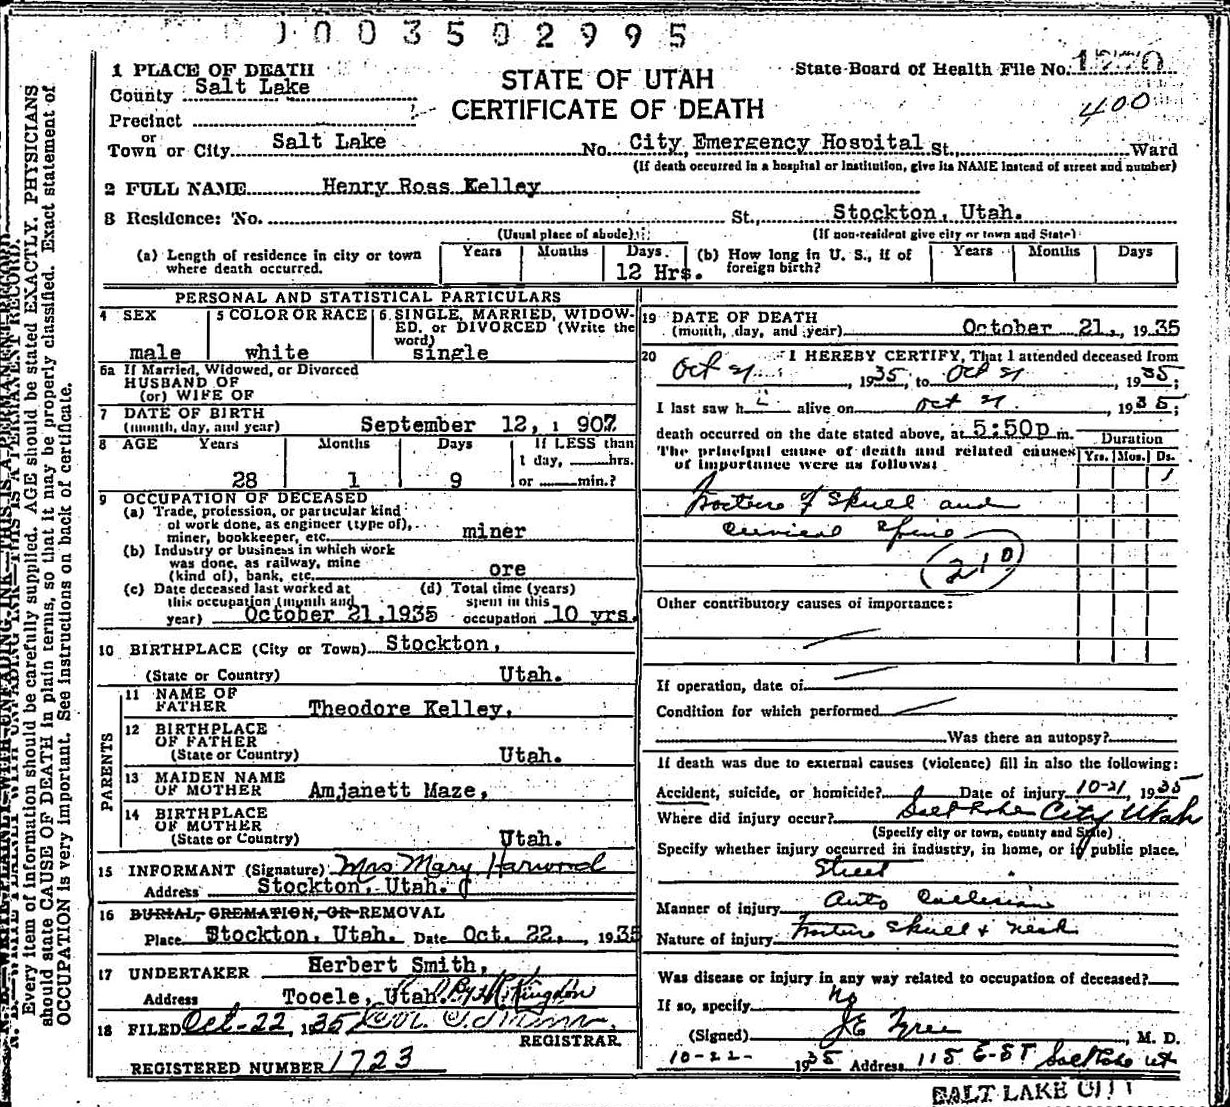 1003502995
1 PLACE OF DEATH
County Salt Lake
Precinct
or
Town or City Salt Lake
STATE OF UTAH
CERTIFICATE OF DEATH
State Board of Health File No. 1770
400
No. City Emergency Hospital St., Ward
(If death occurred in a hospital or institution, give its NAME instead of street and number)
2 FULL NAME Henry Ross Kelley
3 Residence: No. St., Stockton, Utah.
(Usual place of abode) (If non-resident give city or town and State)
(a) Length of residence in city or town where death occurred. Years Months Days 12 Hrs.
(b) How long in U. S., if of foreign birth? Years Months Days
PERSONAL AND STATISTICAL PARTICULARS
4 SEX male
5 COLOR OR RACE white
6 SINGLE, MARRIED, WIDOWED, or DIVORCED (Write the word) single
6a If Married, Widowed, or Divorced
HUSBAND OF
(or) WIFE OF
7 DATE OF BIRTH
(month, day, and year) September 12, 1907
8 AGE Years Months Days If LESS than
1 day, hrs.
28 1 9 or min.?
9 OCCUPATION OF DECEASED
(a) Trade, profession, or particular kind
of work done, as engineer (type of),
miner, bookkeeper, etc. miner
(b) Industry or business in which work
was done, as railway, mine
(kind of), bank, etc. ore
(c) Date deceased last worked at
this occupation (month and
year) October 21, 1935
(d) Total time (years)
spent in this
occupation 10 yrs.
10 BIRTHPLACE (City or Town) Stockton,
(State or Country) Utah.
PARENTS
11 NAME OF
FATHER Theodore Kelley,
12 BIRTHPLACE
OF FATHER
(State or Country) Utah.
13 MAIDEN NAME
OF MOTHER Amjanett Maze,
14 BIRTHPLACE
OF MOTHER
(State or Country) Utah.
15 INFORMANT (Signature) Mrs Mary Harwood
Address Stockton, Utah.
16 BURIAL, CREMATION, OR REMOVAL
Place Stockton, Utah. Date Oct. 22, 1935
17 UNDERTAKER Herbert Smith,
Address Tooele, Utah.
18 FILED Oct-22, 1935
REGISTRAR
REGISTERED NUMBER 1723
19 DATE OF DEATH
(month, day, and year) October 21, 1935
20 I HEREBY CERTIFY, That I attended deceased from
Oct 21, 1935, to Oct 21, 1935;
I last saw h i alive on Oct 21, 1935;
death occurred on the date stated above, at 5:50p m.
The principal cause of death and related causes
of importance were as follows:
Duration
Yrs. Mos. Ds.
1
Fracture of Skull and
Cervical Spine
210
Other contributory causes of importance:
If operation, date of
Condition for which performed
Was there an autopsy?
If death was due to external causes (violence) fill in also the following:
Accident, suicide, or homicide? Date of injury 10-21, 1935
Where did injury occur? Salt Lake City Utah
(Specify city or town, county and State)
Specify whether injury occurred in industry, in home, or in public place.
Street
Manner of injury Auto Collision
Nature of injury Fracture Skull + Neck
Was disease or injury in any way related to occupation of deceased?
If so, specify No
(Signed) J E Tyree, M. D.
10-22- 1935 Address 115 E-ST Salt Lake Ut
SALT LAKE CITY
N. B.—WRITE PLAINLY WITH UNFADING INK—THIS IS A PERMANENT RECORD.
Every item of information should be carefully supplied. AGE should be stated EXACTLY. PHYSICIANS
should state CAUSE OF DEATH in plain terms, so that it may be properly classified. Exact statement of
OCCUPATION is very important. See instructions on back of certificate.